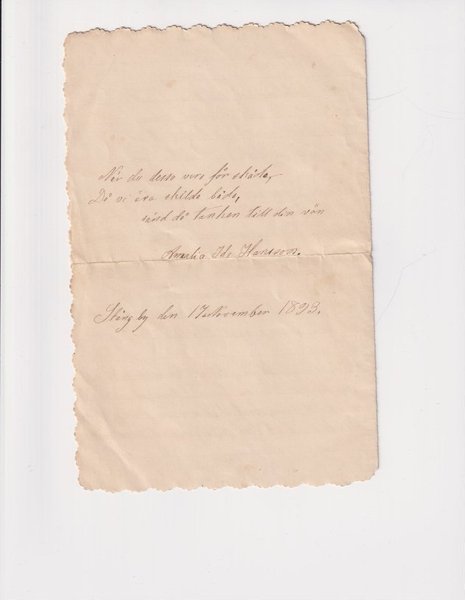 När du dessa vers för skåda,
Då vi äro skilda båda,
sänd då tanken till din vän
Amalia Hansson.
by den 17 November 1893.